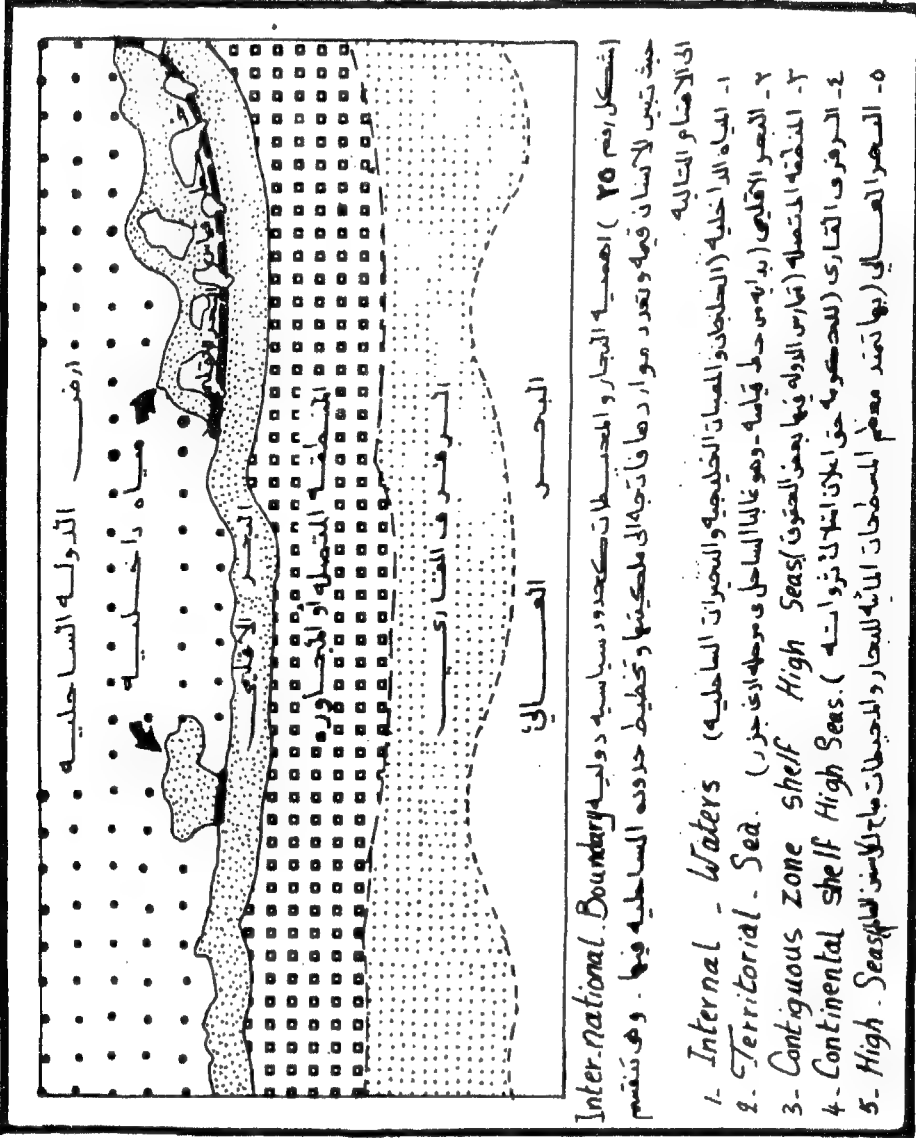 ارض الدوله الساحليه
مياه داخليه
خط الأساس
البحر الاقليمى
المنطقه المتصله او المجاوره
الرفرف القارى
البحر العالى
(شكل رقم ٢٥) اهميه البحار والمحيطات كحدود سياسيه دوليه Inter-national Boundary
حيث تبين للانسان قيمه وتعدد مواردها فاتجه الى ملكيتها وتخطيط حدوده الساحليه فيها . وهى تنقسم
الى الاقسام التاليه
١- المياه الداخلية (الخلجان والمصبات الخليجيه والبحيرات الساحليه) 1- Internal - Waters
٢- البحر الاقليمى (بدايه من خط قياسه - وهو غالبا الساحل فى مرحله ادنى جزر) 2- Territorial - Sea.
٣- المنطقه المتصله (تمارس الدوله فيها بعض الحقوق) 3- Contiguous zone shelf High Seas
٤- الرفرف القارى (للحكومه حق اعلان امتلاك ثرواته) 4- Continental shelf High Seas.
٥- البحر العالى (بها تمتد معظم المسطحات المائيه للبحار والمحيطات 5- High - Seas